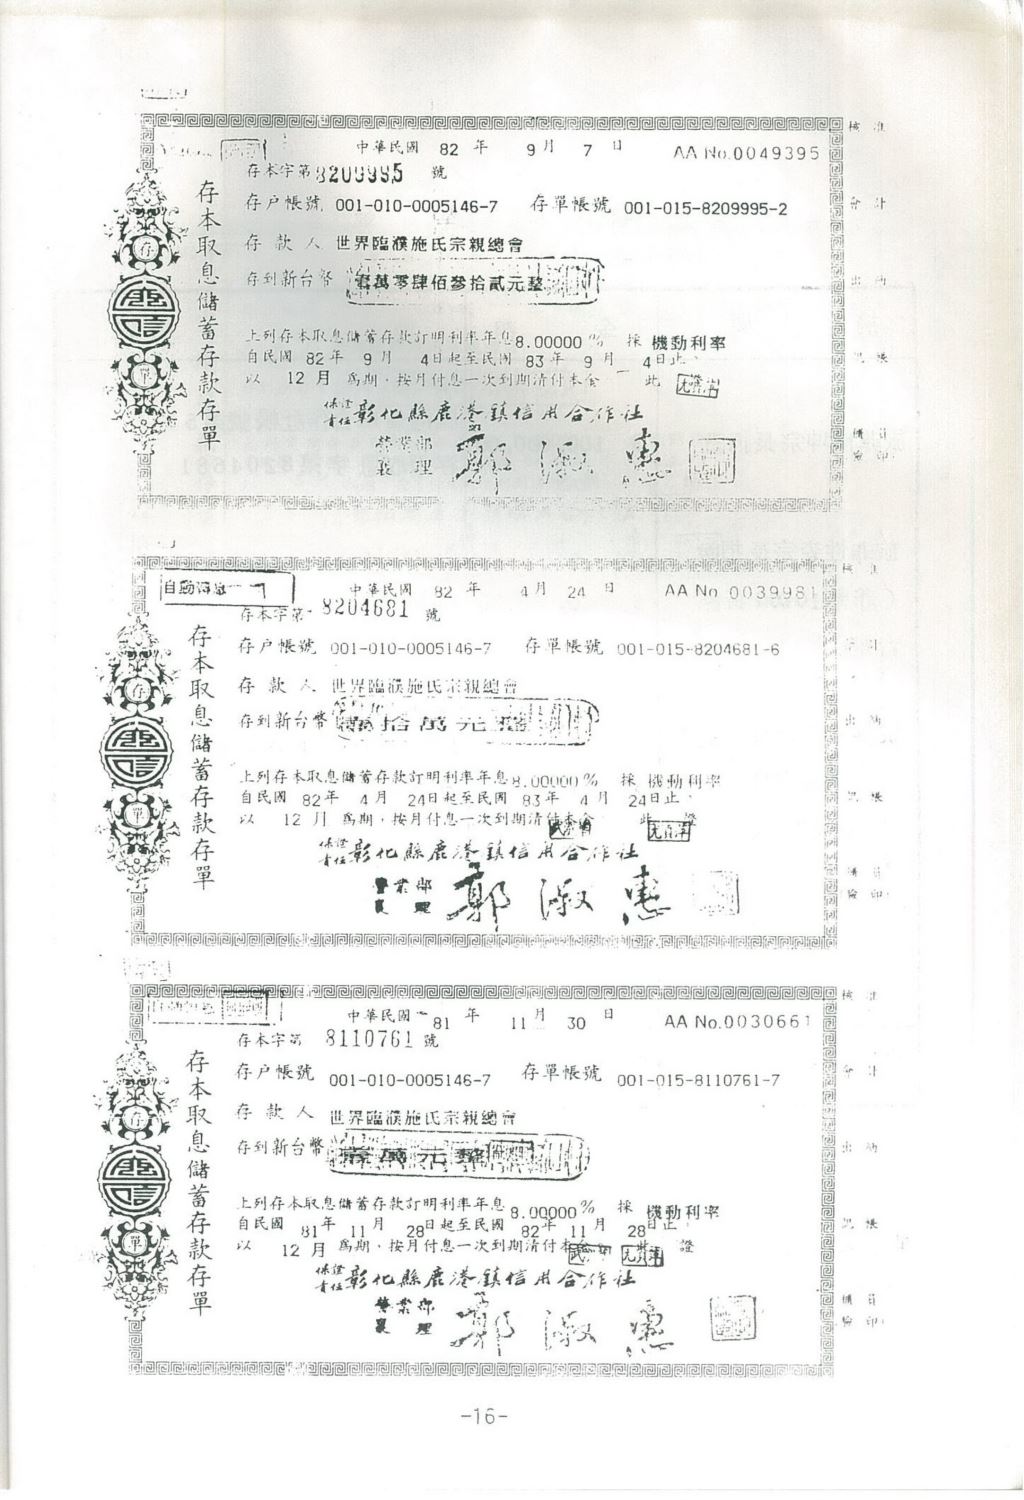 核 准
中華民國 82 年 9 月 7 日 AA No.0049395
存本字第8209995 號
存戶帳號 001-010-0005146-7 存單帳號 001-015-8209995-2
會 計
存 款 人 世界臨濮施氏宗親總會
存到新台幣 壹萬零肆佰參拾貳元整
出 納
上列存本取息儲蓄存款訂明利率年息8.00000 % 採 機動利率
自民國 82年 9 月 4日起至民國 83年 9 月 4日止,
記 帳
以 12月 為期,按月付息一次到期清付本金 此
保證責任彰化縣鹿港鎮信用合作社
營業部
襄 理 郭淑惠
櫃 員
驗 印
存本取息儲蓄存款存單
存
單
核 准
自動
中華民國 82 年 4 月 24 日 AA No 0039981
存本字第 8204681 號
存戶帳號 001-010-0005146-7 存單帳號 001-015-8204681-6
會 計
存 款 人 世界臨濮施氏宗親總會
存到新台幣 拾萬元整
出 納
上列存本取息儲蓄存款訂明利率年息8.00000 % 採 機動利率
自民國 82年 4月 24日起至民國 83年 4 月 24日止,
記 帳
以 12月 為期,按月付息一次到期清付本金 此 證
保證責任彰化縣鹿港鎮信用合作社
營業部
襄 理 郭淑惠
櫃 員
驗 印
存本取息儲蓄存款存單
存
單
核 准
中華民國 81 年 11 月 30 日 AA No.0030661
存本字第 8110761 號
存戶帳號 001-010-0005146-7 存單帳號 001-015-8110761-7
會 計
存 款 人 世界臨濮施氏宗親總會
存到新台幣 萬元整
出 納
上列存本取息儲蓄存款訂明利率年息8.00000 % 採 機動利率
自民國 81年 11 月 28日起至民國 82年 11 月 28日止,
記 帳
以 12月 為期,按月付息一次到期清付本金 此 證
保證責任彰化縣鹿港鎮信用合作社
營業部
襄 理 郭淑惠
櫃 員
驗 印
存本取息儲蓄存款存單
存
單
-16-